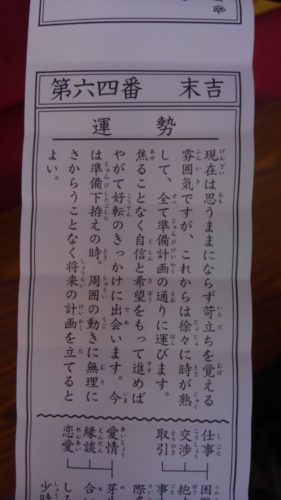 第六四番 末吉
運勢
現在は思うままにならず苛立ちを覚える
雰囲気ですが、これからは徐々に時が熟
して、全て準備計画の通りに運びます。
焦ることなく自信と希望をもって進めば
やがて好転のきっかけに出会います。今
は準備下拵えの時。周囲の動きに無理に
さからうことなく将来の計画を立てると
よい。
仕事
交渉
取引
愛情
縁談
恋愛